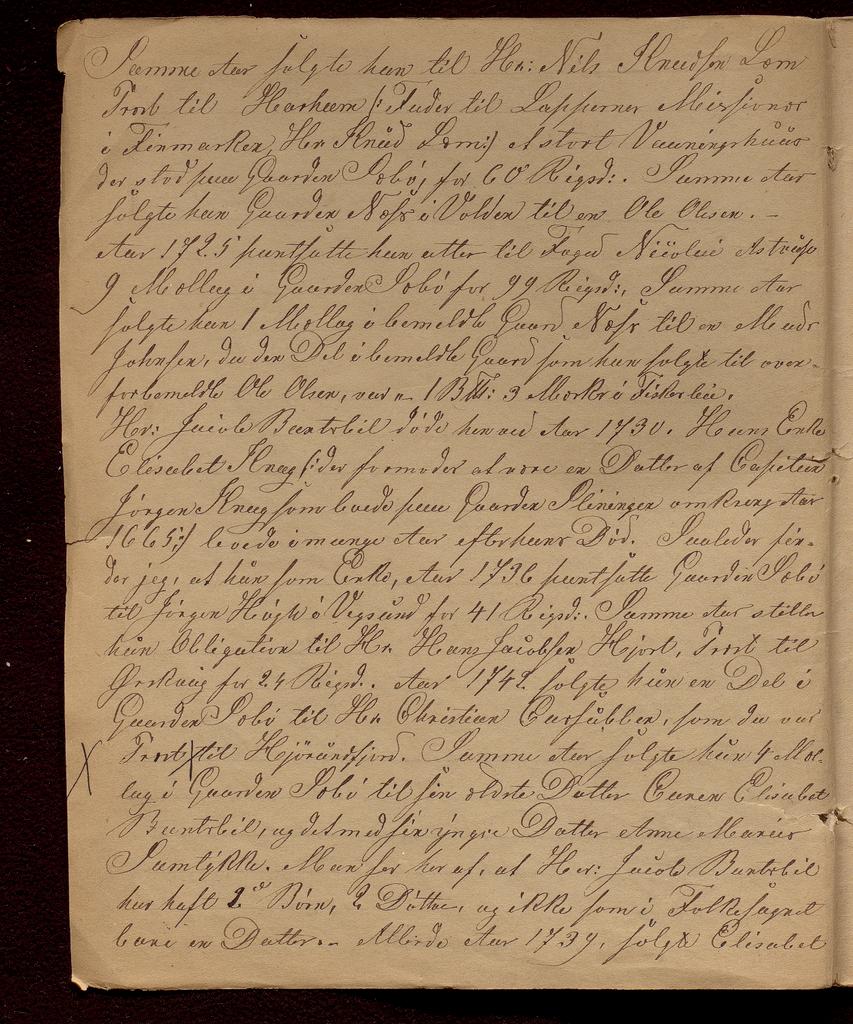 Samme Aar solgte han til Hr: Nils Knudsen Lem
Prost til Harheem /: Fader til Lappernes Missionær
i Finmarken, Hr Knud Lem:/ et stort Vaaningshuus
der stod paa Gaarden Sæbø, for 60 Rigsd:. Samme Aar
solgte han Gaarden Næss i Volden til en Ole Olsen. –
Aar 1725 pantsatte han atter til Foged Nicolai Astrup
9 Mællag i Gaarden Sæbø for 99 Rigsd:, Samme Aar
solgte han 1 Mællag i bemeldte Gaard Næss til en Mads
Johnsen, da den Del i bemeldte Gaard som han solgte til oven-
forbemeldte Ole Olsen, var 1 3 Marker i Fiskerleie.
Hr: Jacob Bartsbil døde hen ved Aar 1730. Hans Enke
Elisabet Knag /: der formodes at være en Datter af Capitein
Jørgen Knag som boede paa Gaarden Pleiningen omkring Aar
1665:/ levede i mange Aar efter hans Død. Saaledes fin-
der jeg, at hun som Enke, Aar 1736 pantsatte Gaarden Sæbø
til Jørgen Hugh i Vegsund for 41 Rigsd:. Samme Aar stiller
hun Obligation til Hr. Hans Jacobsen Hjort, Prost til
Ørskaug for 24 Rigsd:. Aar 1742 solgte hun en Del i
Gaarden Sæbø til Hr Christian Carsübben, som da var
X Prost X til Hjörundfjord. Samme Aar solgte hun 4 Mæl-
lag i Gaarden Sæbø til sin ældste Datter Caren Elisabet
Bartsbil, og det med sin yngre Datter Anne Maries
Samtykke. Man ser her af, at Her: Jacob Bartsbil
har haft 2 Børn, 2 Døttre, og ikke som i Folkesagnet
bare en Datter. – Allerede Aar 1739, solgte Elisabet